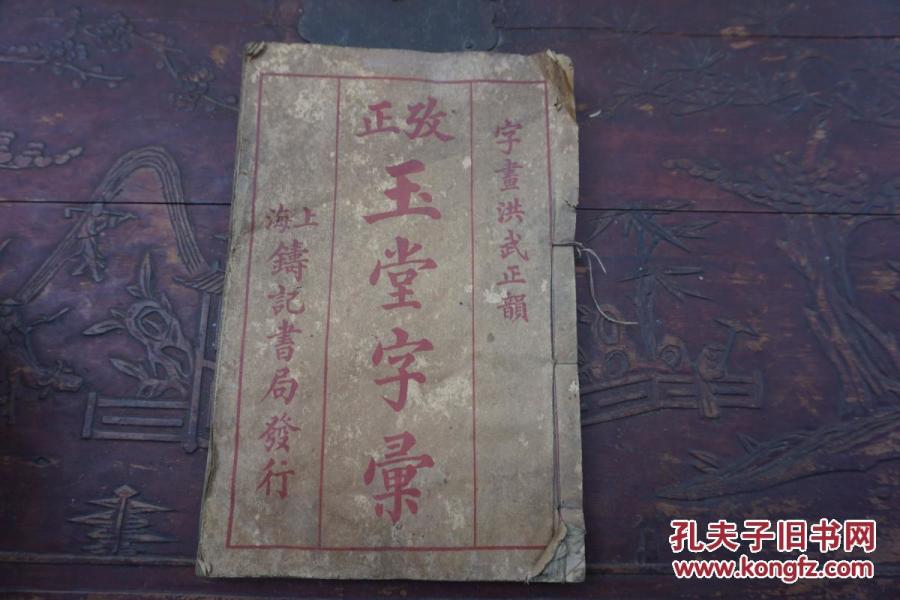 字畫洪武正韻
攷正
玉堂字彙
上海
鑄記書局發行
孔夫子旧书网
www.kongfz.com